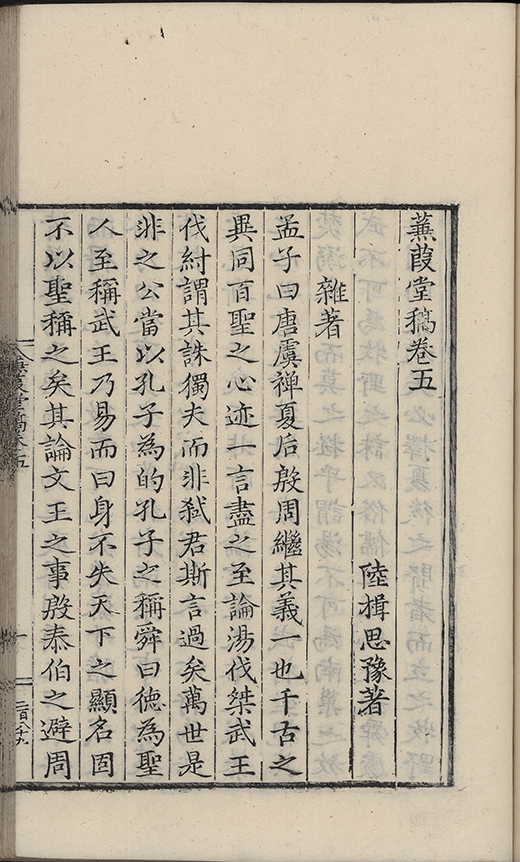 蒹葭堂稿卷五
陸楫思豫著
雜著
孟子曰唐虞禅夏后殷周繼其義一也千古之
異同百聖之心迹一言盡之至論湯伐桀武王
伐紂謂其誅獨夫而非弑君斯言過矣萬世是
非之公當以孔子為的孔子之稱舜曰德為聖
人至稱武王乃易而曰身不失天下之顯名固
不以聖稱之矣其論文王之事殷泰伯之避周